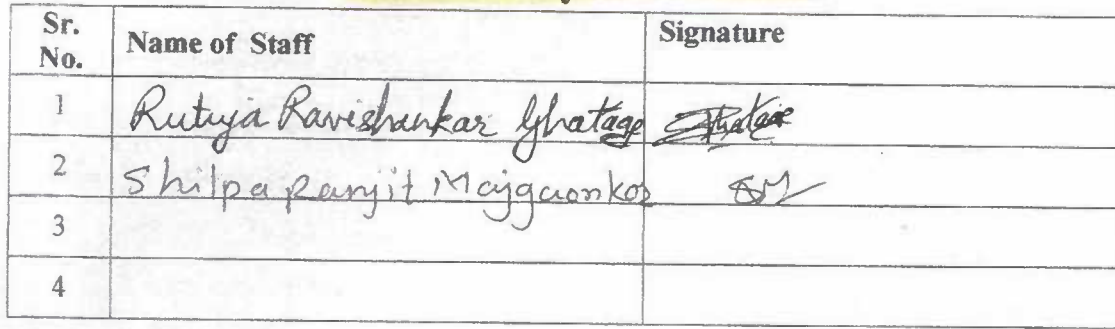 Sr. No. Name of Staff Signature
1 Rutuja Ravishankar Ghatage Ghatage
2 Shilpa Ranjit Majgaonkar SM
3
4